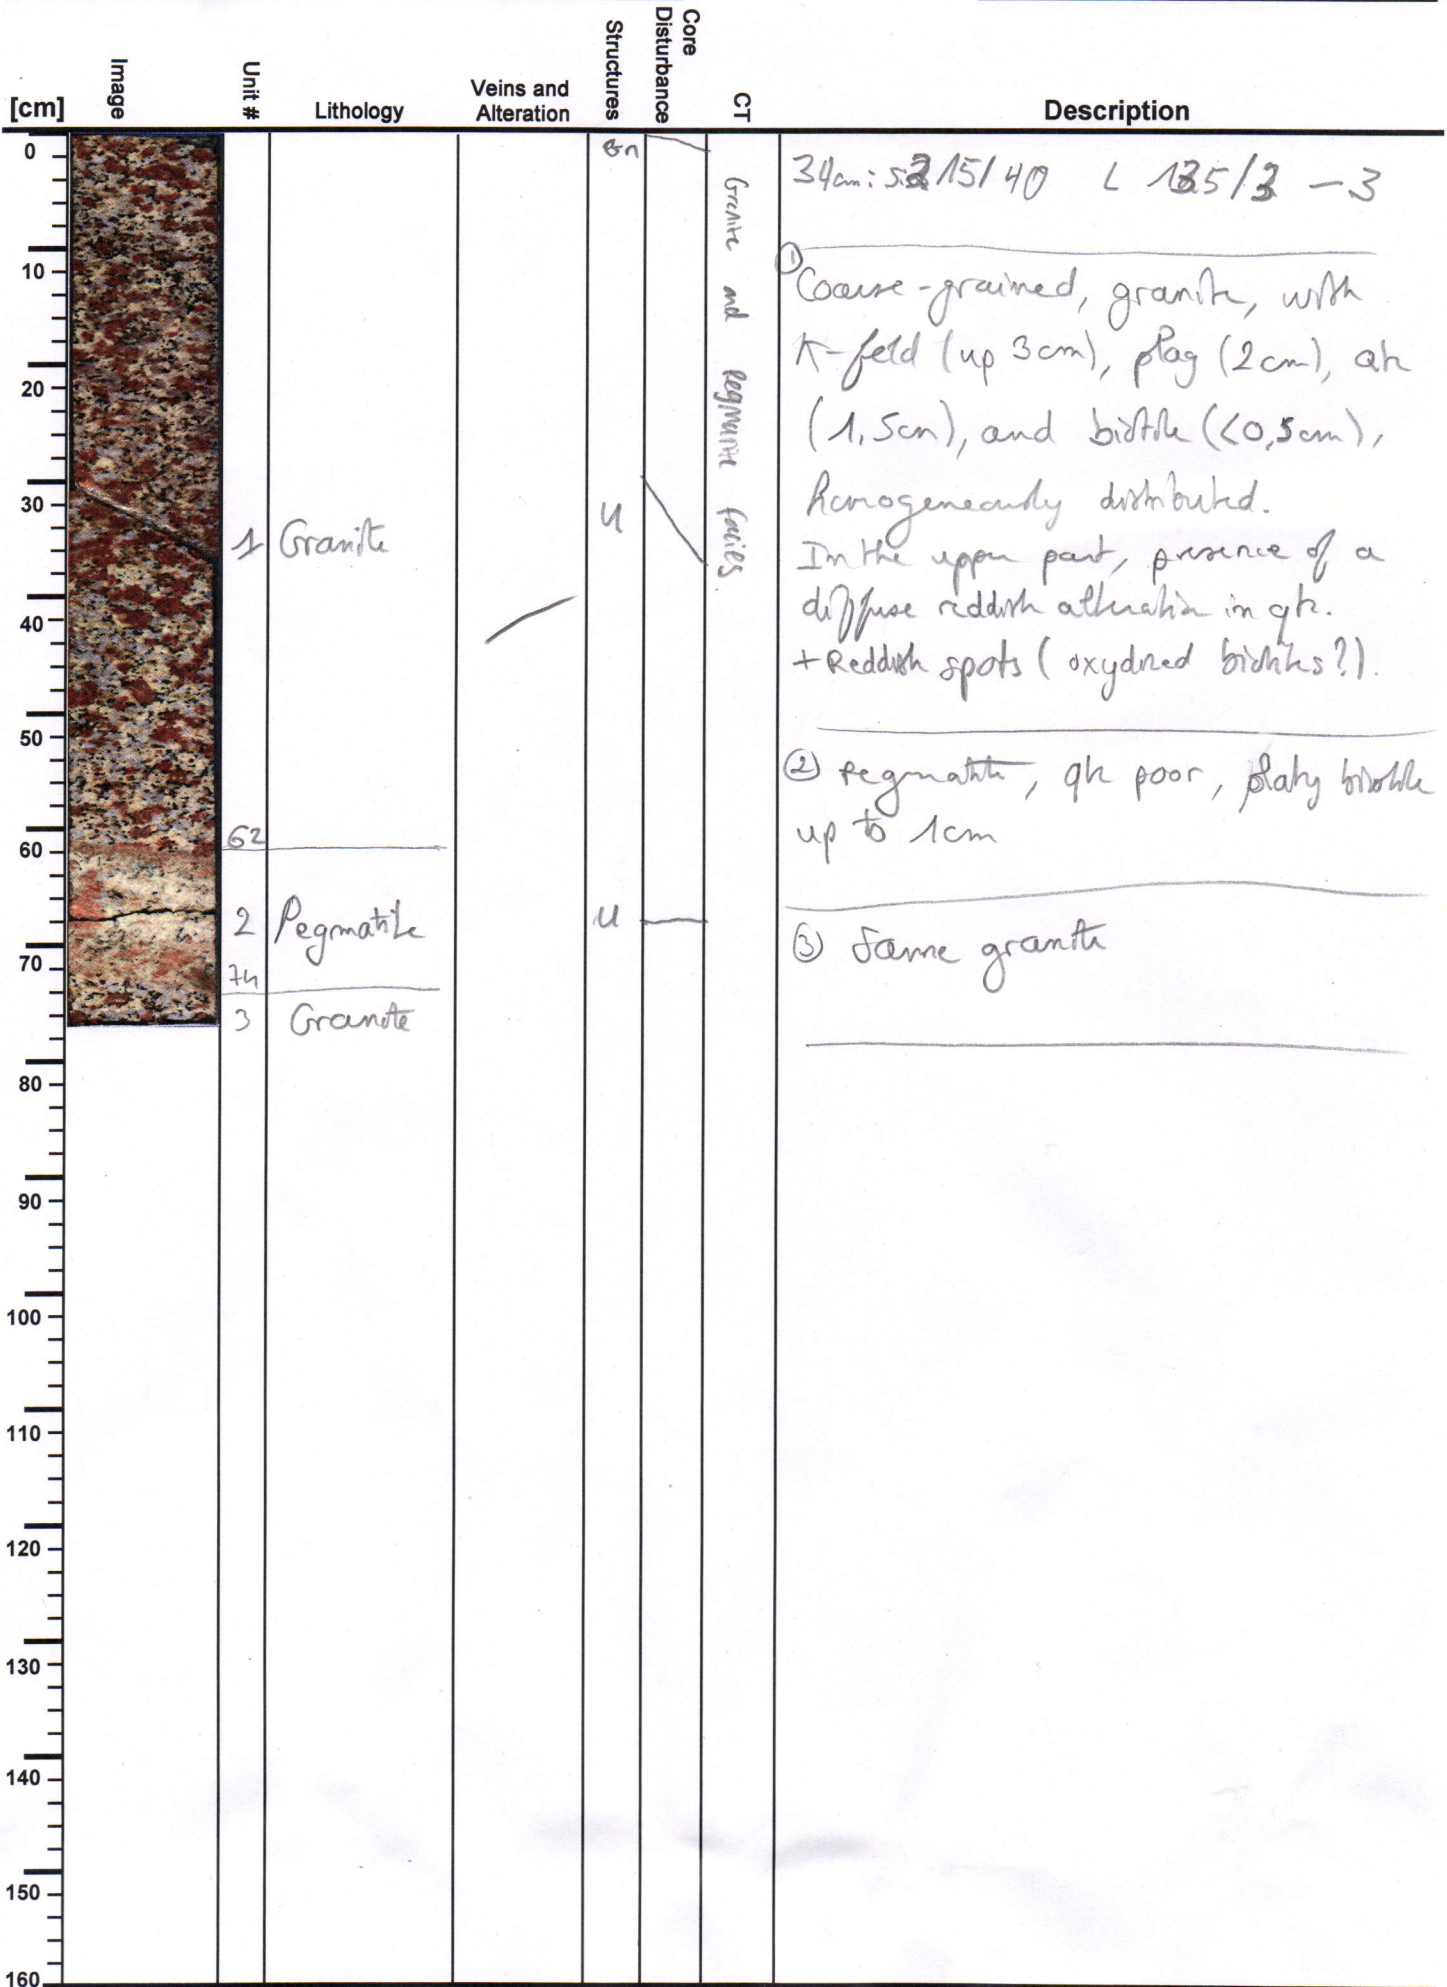 [cm]
Image
Unit #
Lithology
Veins and
Alteration
Structures
Core
Disturbance
CT
Description
0
10
20
30
40
50
60
70
80
90
100
110
120
130
140
150
160
1 Granite
62
2 Pegmatite
74
3 Granite
U
U
Granite and Pegmatite facies
34cm: 215/40 L 135/3 - 3
① Coarse-grained, granite, with
K-feld (up 3cm), plag (2cm), qtz
(1,5cm), and biotite (<0,5cm),
homogeneously distributed.
In the upper part, presence of a
diffuse reddish alteration in qtz.
+ Reddish spots (oxydized biotites?).
② Pegmatite, qtz poor, platy biotite
up to 1cm
③ Same granite